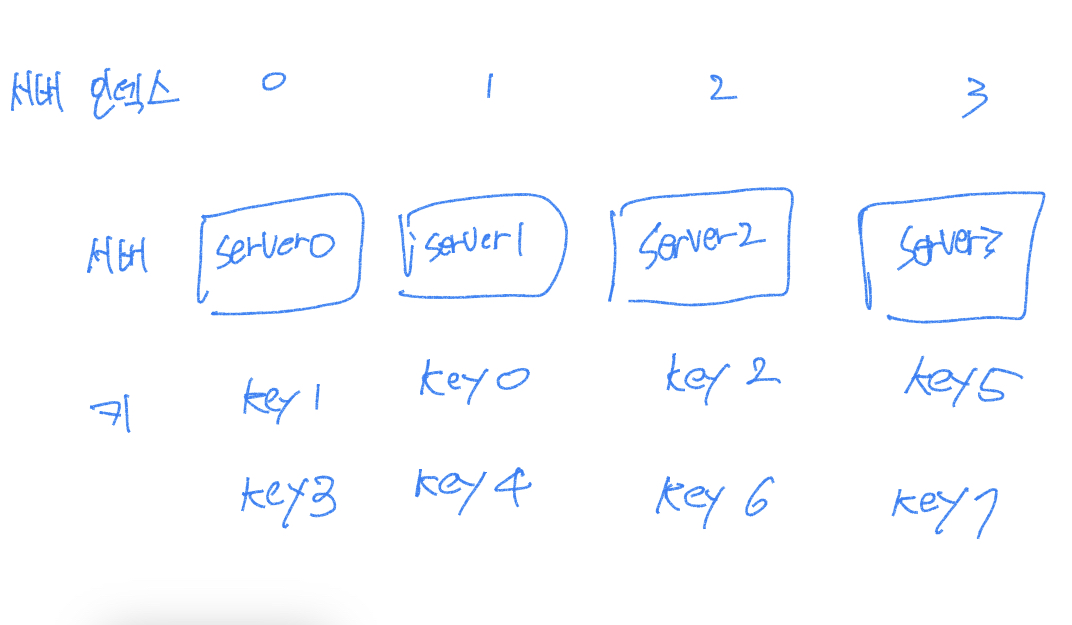 서버 인덱스 0 1 2 3
서버 server0 server1 server2 server3
키 key1 key0 key2 key5
key3 key4 key6 key7